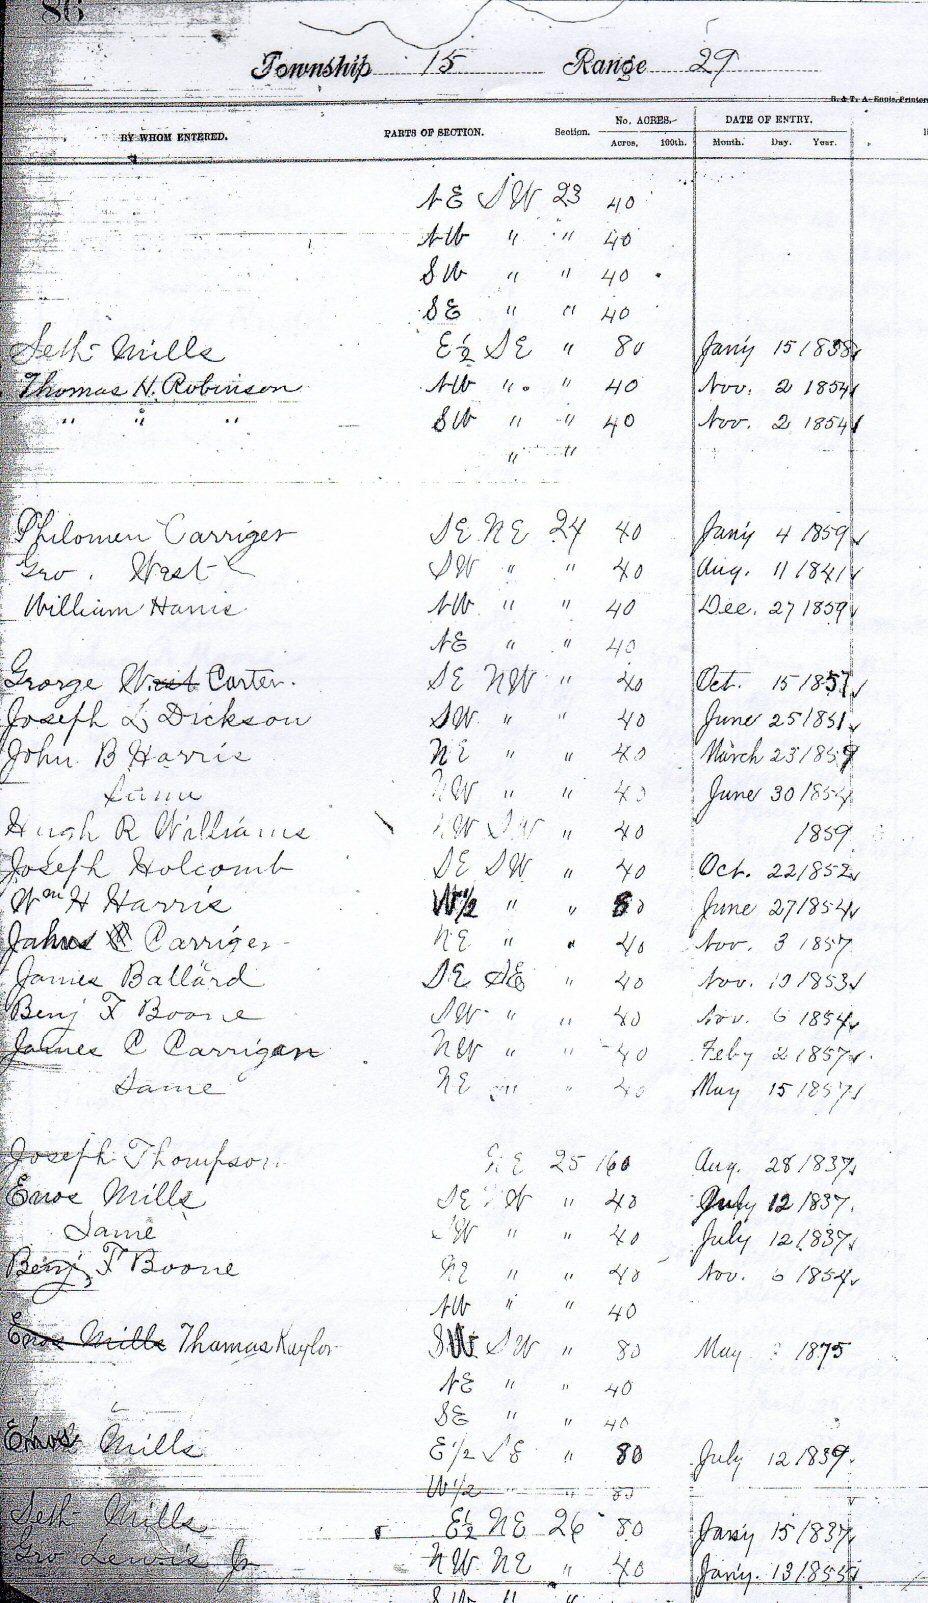 86
Township 15 Range 29
BY WHOM ENTERED. PARTS OF SECTION. Section. No. ACRES. DATE OF ENTRY.
Acres. 100th. Month. Day. Year.
NE SW 23 40
NW " " 40
SW " " 40
SE " " 40
Seth Mills E 1/2 SE " 80 Jan'y 15 1838
Thomas H. Robinson NW " " 40 Nov. 2 1854
" " " SW " " 40 Nov. 2 1854
" "
Philomen Carriger SE NE 24 40 Jan'y 4 1859
Geo. West SW " " 40 Aug. 11 1841
William Harris NW " " 40 Dec. 27 1859
NE " " 40
George West Carter. SE NW " 40 Oct. 15 1857
Joseph L Dickson SW " " 40 June 25 1851
John B Harris NE " " 40 March 23 1859
Same NW " " 40 June 30 1854
Hugh R Williams NW SW " 40 1859
Joseph Holcomb SE SW " 40 Oct. 22 1852
Wm H Harris W 1/2 " " 80 June 27 1854
Carriger NE " " 40 Nov. 3 1857
James Ballard SE SE " 40 Nov. 1853
Benj F Boone SW " " 40 Nov. 6 1854
James C Carrigan NW " " 40 Feby 2 1857
Same NE " " 40 May 15 1857
Joseph Thompson NE 25 160 Aug. 28 1837
Enos Mills SE NW " 40 July 12 1837
Same SW " " 40 July 12 1837
Benj F Boone NE " " 40 Nov. 6 1854
NW " " 40
Enos Mills Thomas Kaylor SW " 80 May 1875
NE " " 40
SE " " 40
Enos Mills E 1/2 SE " 80 July 12 1839
W 1/2 " " 80
Seth Mills E 1/2 NE 26 80 Jan'y 15 1837
Geo Lewis Jr NW NE " 40 Jan'y. 13 1855
SW " "